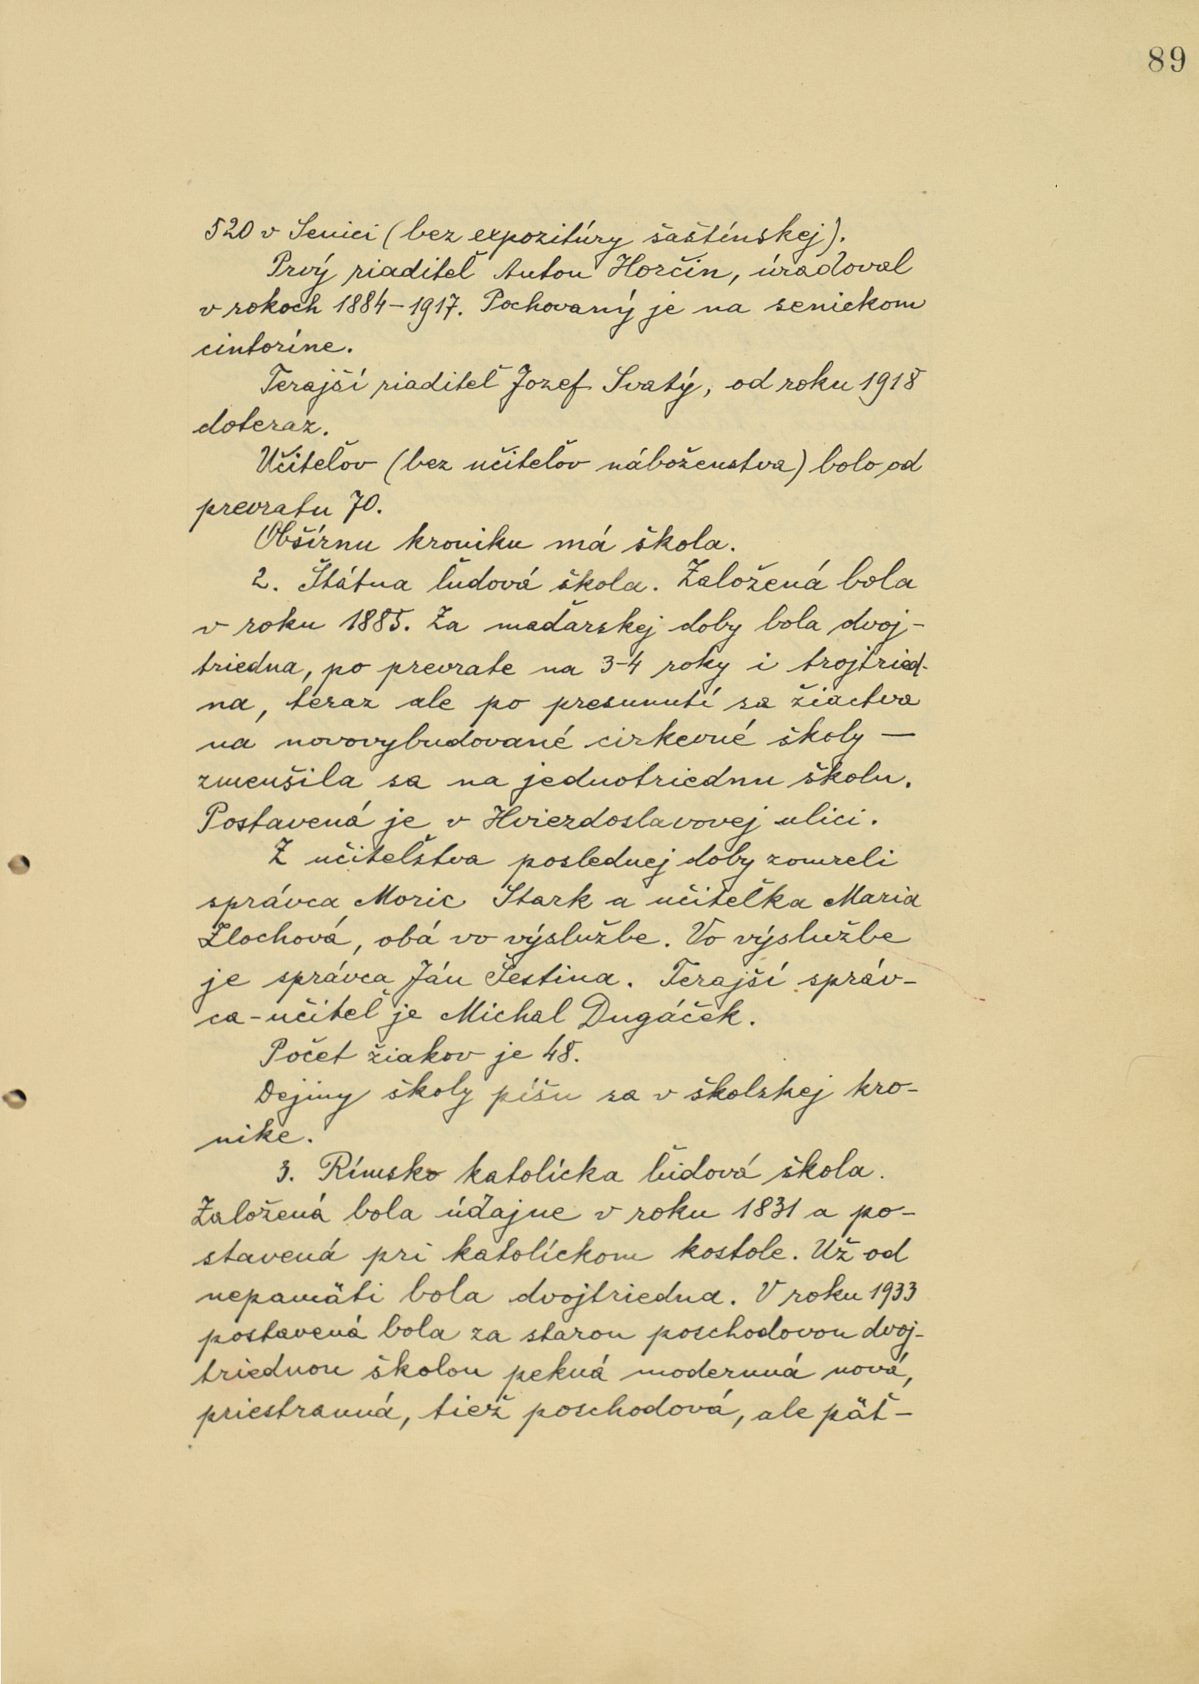 89
520 v Senici (bez expozitúry šaštínskej).
Prvý riaditeľ Anton Horčin, úradoval
v rokoch 1884-1917. Pochovaný je na senickom
cintoríne.
Terajší riaditeľ Jozef Svatý, od roku 1918
doteraz.
Učiteľov (bez učiteľov náboženstva) bolo od
prevratu 70.
Obšírnu kroniku má škola.
2. Štátna ľudová škola. Založená bola
v roku 1885. Za maďarskej doby bola dvoj-
triedna, po prevrate na 3-4 roky i trojtried-
na, teraz ale po presunutí sa žiactva
na novovybudované cirkevné školy —
zmenšila sa na jednotriednu školu.
Postavená je v Hviezdoslavovej ulici.
Z učiteľstva poslednej doby zomreli
správca Moric Stark a učiteľka Maria
Zlochová, obá vo výslužbe. Vo výslužbe
je správca Ján Šestina. Terajší správ-
ca-učiteľ je Michal Dugáček.
Počet žiakov je 48.
Dejiny školy píšu sa v školskej kro-
nike.
3. Rímsko katolícka ľudová škola.
Založená bola údajne v roku 1831 a po-
stavená pri katolíckom kostole. Už od
nepamäti bola dvojtriedna. V roku 1933
postavená bola za starou poschodovou dvoj-
triednou školou pekná modernná nová,
priestranná, tiež poschodová, ale päť-